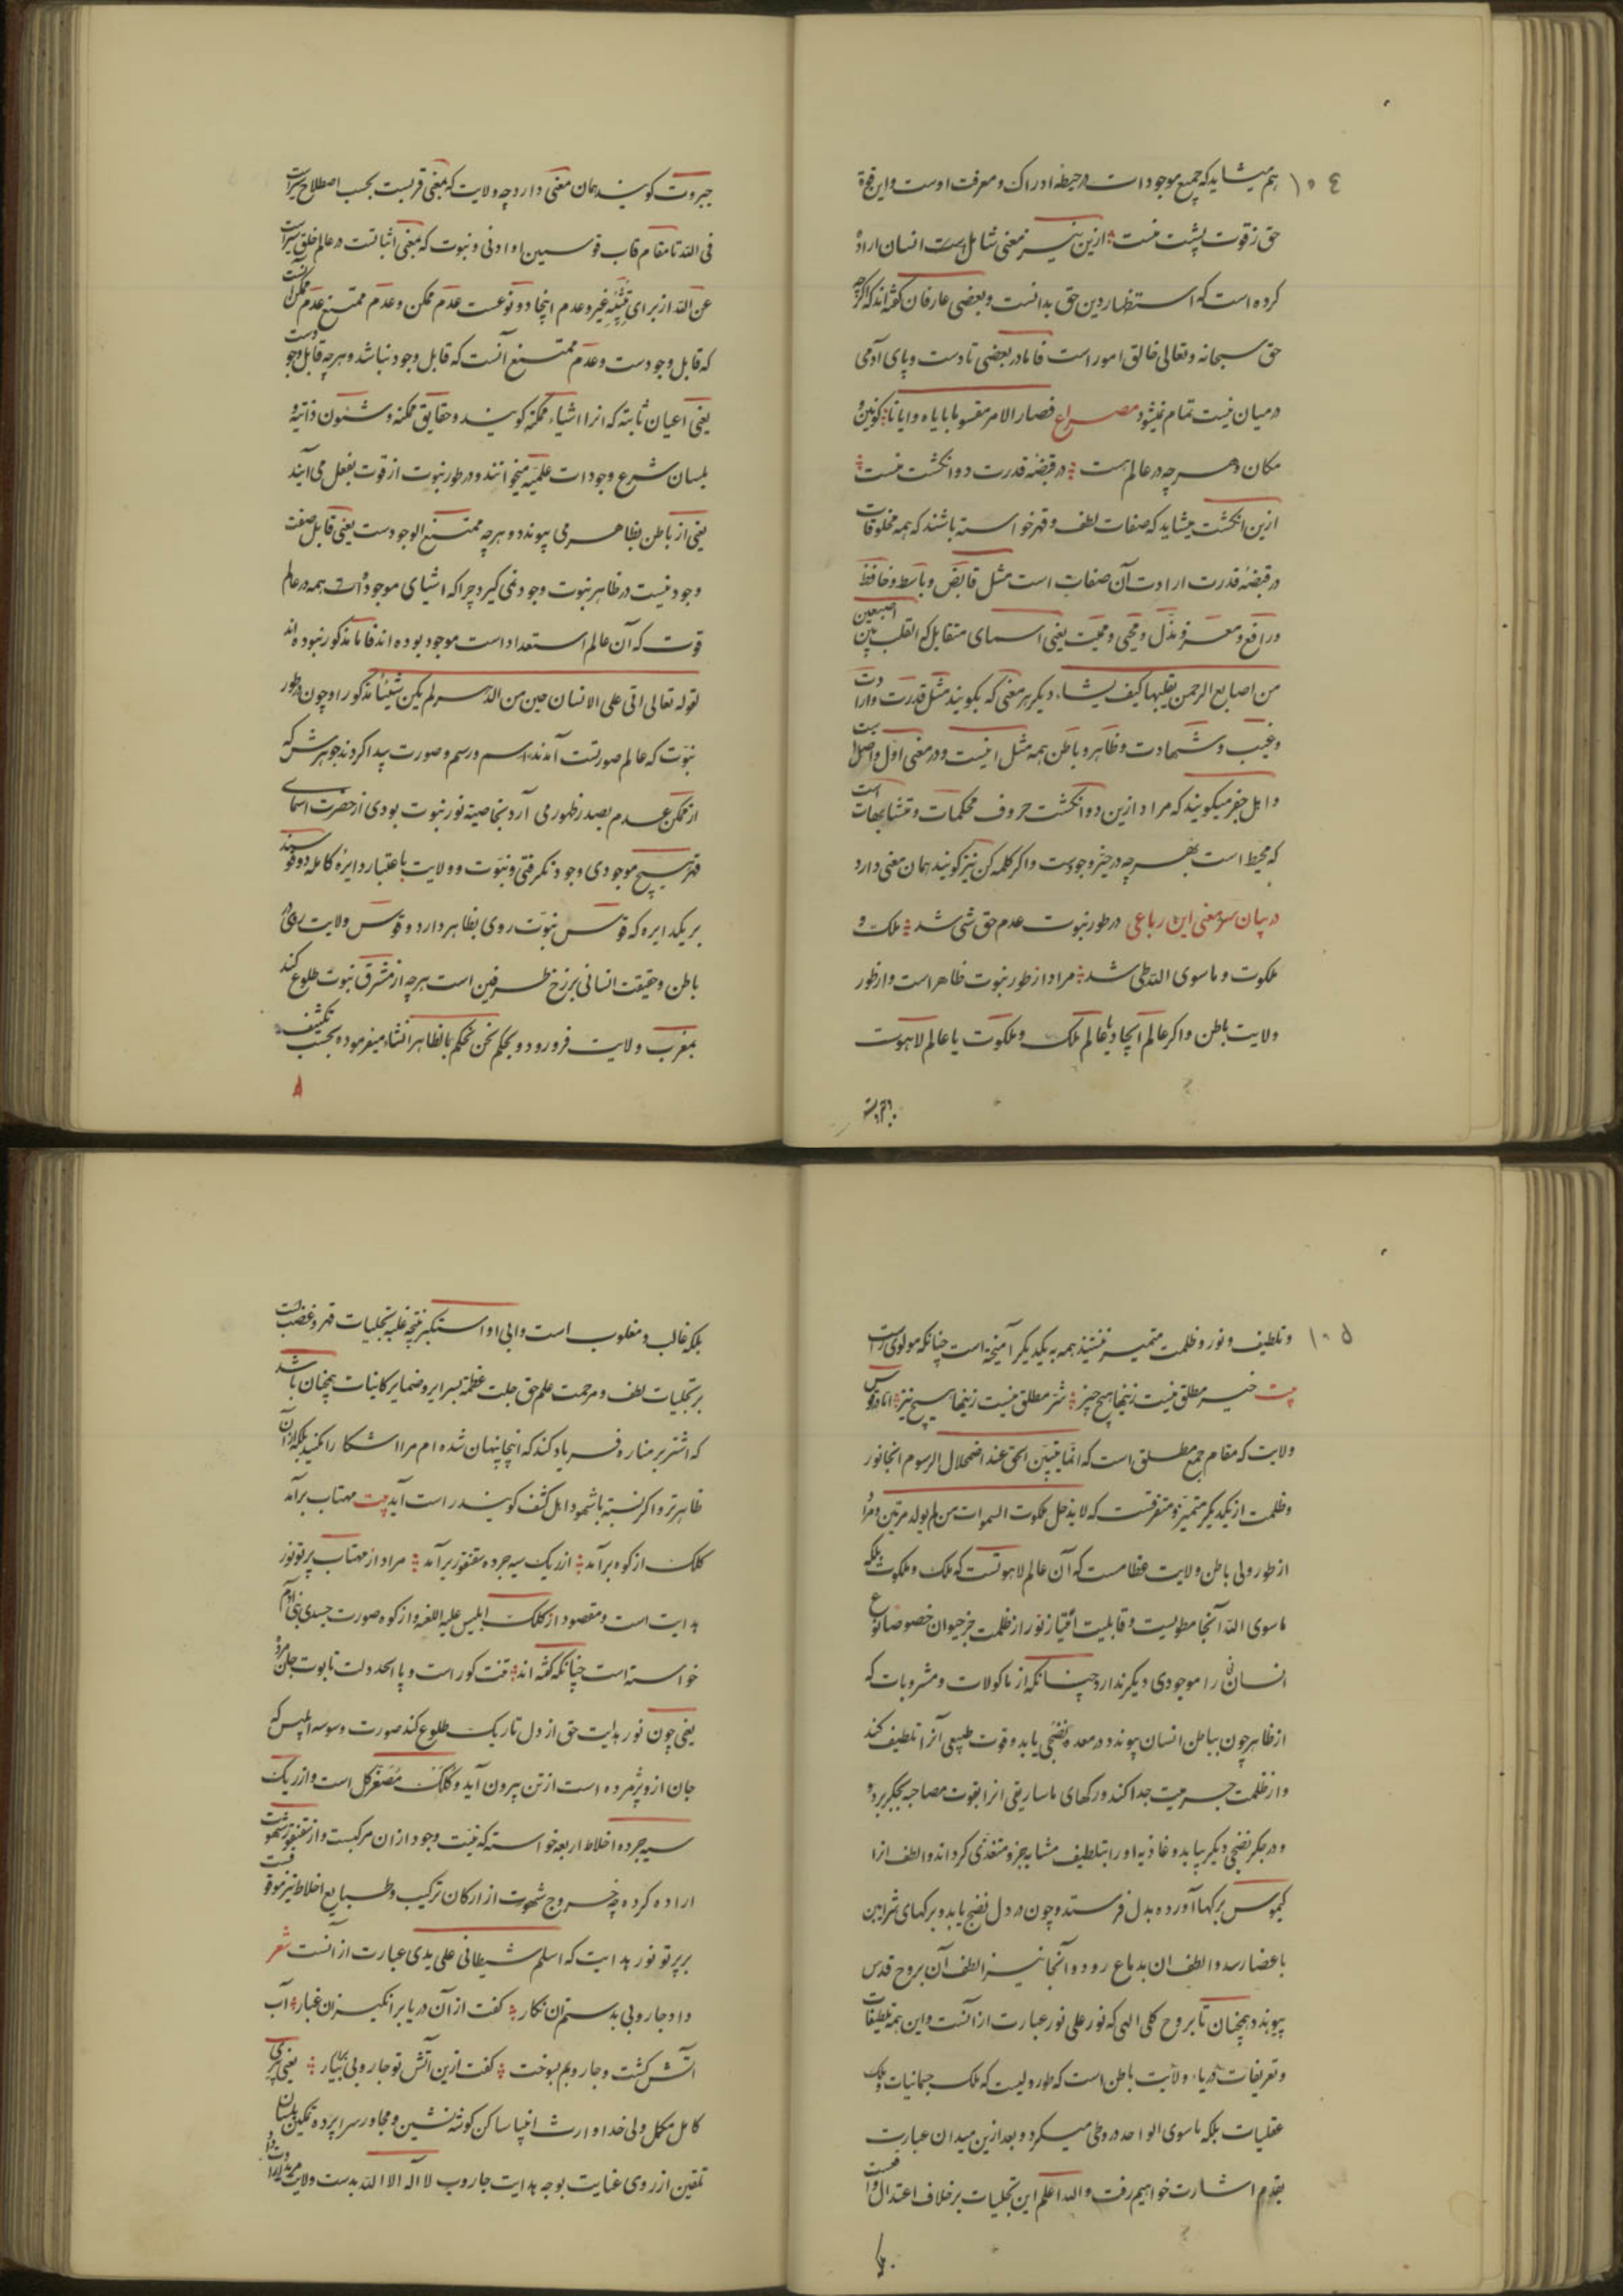 ١٠٤
هم میشاید که جمیع موجودات در حیطه ادراک و معرفت اوست و این قوة
حق ز قوت پشت منست ازین نیز معنی شامل است انسان اراده
کرده است که استظهار دین حق بدانست و بعضی عارفان گفته‌اند که اگرچه
حق سبحانه و تعالی خالق امور است فاما در بعضی تا دست و پای آدمی
در میان نیست تمام نمیشود مصراع فصار الامر مقسوما بایاه و ایانا کونین و
مکان و هرچه در عالم هست در قبضهٔ قدرت دو انکشت منست
ازین انکشت میشاید که صفات لطف و قهر خواسته باشند که همه مخلوقات
در قبضهٔ قدرت ارادت آن صفات است مثل قابض و باسط و خافظ
و رافع و معز و مذل و محیی و ممیت یعنی اسمای متقابل که القلب بین اصبعین
من اصابع الرحمن یقلبها کیف یشاء دیکر هر معنی که بکویند مثل قدرت و ارادت
و غیب و شهادت و ظاهر و باطن همه مثل اینست و در معنی اول و اصل
و اهل جفر میکویند که مراد ازین دو انکشت حروف محکمات و متشابهات است
که محیط است بهر چه در حیز وجودست و اکر کلمه کن نیز کویند همان معنی دارد
در بیان سر معنی این رباعی در طور نبوت عدم حق شی شد ملک و
ملکوت و ماسوی الله طی شد مراد از طور نبوت ظاهر است و از طور
ولایت باطن و اکر عالم ایجاد یا عالم ملک و ملکوت یا عالم لاهوت
جبروت کویند همان معنی دارد چه ولایت که بمعنی قربست بحسب اصطلاح سیرات
فی الله تا مقام قاب قوسین او ادنی و نبوت که بمعنی انباتست در عالم خلق سیرات
عن الله از برای تنبیه غیر و عدم اینجا دو نوعست عدم ممکن و عدم ممتنع عدم ممکن آنست
که قابل وجودست و عدم ممتنع آنست که قابل وجود نباشد و هرچه قابل وجودست
یعنی اعیان ثابته که انرا اشیاء ممکنه کویند و حقایق ممکنه و شئون ذاتیه و
بلسان شرع وجودات علمیه میخوانند و در طور نبوت از قوت بفعل می آیند
یعنی از باطن بظاهر می پیوندد و هرچه ممتنع الوجودست یعنی قابل صفت
وجود نیست در ظاهر نبوت وجود نمی کیرد چرا که اشیای موجودات همه در عالم
قوت که آن عالم استعداد است موجود بوده اند فاما مذکور نبوده اند
لقوله تعالی اتی علی الانسان حین من الدهر لم یکن شیئا مذکورا و چون در طور
نبوت که عالم صورتست آمدند اسم و رسم و صورت پیدا کردند جوهرش که
از ممکن عدم بصدر ظهور می آرد بخاصیة نور نبوت بودی از حضرت اسمای
قهر هیچ موجودی وجود نکرفتی و نبوت و ولایت باعتبار دایرهٔ کامله دو قوسند
بر یکدایره که قوس نبوت روی بظاهر دارد و قوس ولایت روی در
باطن و حقیقت انسانی برزخ طرفین است هرچه از مشرق نبوت طلوع کند
بمغرب ولایت فرو رود و بحکم نحن نحکم بالظاهر انشاء میفرموده بحسب تکشف
١٠٥
و تلطیف و نور و ظلمت متمیز نیستند همه به یکدیکر آمیخته است چنانکه مولوی راست
بیت خیر مطلق نیست زینها هیچ چیز شر مطلق نیست زینها هیچ نیز اما در قوس
ولایت که مقام جمع مطلق است که انما یتبین الحق عند اضمحلال الرسوم انجا نور
و ظلمت از یکدیکر متمیز و متفرقست که لا یدخل ملکوت السموات من لم یولد مرتین و مراد
از طور ولی باطن ولایت عظامست که آن عالم لاهوتست که ملک و ملکوت بلکه
ماسوی الله آنجا مطویست و قابلیت امتیاز نور از ظلمت جز حیوان خصوصا نوع
انسان را موجودی دیکر ندارد چنانکه از ماکولات و مشروبات که
از ظاهر چون بباطن انسان پیوندد در معده نضجی یابد و قوت طبیعی آنرا تلطیف کند
و از ظلمت جسمیت جدا کند و رکهای ماساریقی انرا بقوت مصاحبه بجکر برد
و در جکر نضجی دیکر بیابد و غاذیه او را بتلطیف مشابه جزو متغذی کرداند و الطف انرا
کیموس برکها آورده بدل فرستد و چون در دل نضج یابد و برکهای شرایین
باعضا رسد و الطف ان بدماغ رود و آنجا نیز الطف آن بروح قدس
پیوندد همچنان تا بروح کلی الهی که نور علی نور عبارت از آنست و این همه تلطیفات
و تعریفات دریاء ولایت باطن است که طور ولیست که ملک جسمانیات و ملک
عقلیات بلکه ماسوی الواحد در وطی میکرد و بعد ازین میدان عبارت
بقدم اشارت خواهیم رفت و الله اعلم این تجلیات بر خلاف اعتدال
بلکه غالب و مغلوب است و ابی و استکبر نتیجه غلبه تجلیات قهر و غضبست
بر تجلیات لطف و مرحمت علم حق جلت عظمته بسرایر و ضمایر کاینات همچنان باشد
که اشتر بر مناره فریاد کند که اینجا پنهان شده ام مرا اشکارا مکنید بلکه از آن
ظاهرتر و اکر نسبته باشمود اهل کشف کویند راست آید بیت مهتاب برآمد
کلک از کوه برآمد از ریک سیه جرده سقنقور برآمد مراد از مهتاب پرتو نور
هدایت است و مقصود از کلک ابلیس علیه اللعنه و از کوه صورت جسدی بنی آدم
خواسته است چنانکه کفته اند
یعنی چون نور هدایت حق از دل تاریک طلوع کند صورت وسوسه ابلیس که
جان ازو پژمرده است از تن بیرون آید و کلک مصغر کل است و از ریک
سیه جرده اخلاط اربعه خواسته که نیت وجود ازان مرکبست و از سقنقور شهوت
اراده کرده چه خروج شهوت از ارکان ترکیب و طبایع اخلاط نیز موقوفست
بر پرتو نور هدایت که اسلم شیطانی علی یدی عبارت از آنست شعر
داد جاروبی بدستم ان نکار کفت از آن دریا برانکیزان غبار آب
آتش کشت و جاروبم بسوخت کفت ازین آتش تو جاروبی بیار یعنی پیری
کامل مکمل ولی خدا و ارث انبیا ساکن کوشه نشین و مجاور سراپرده تمکین بلسان
تلقین از روی عنایت بوجه هدایت جاروب لا اله الا الله بدست ولایت مرید داد